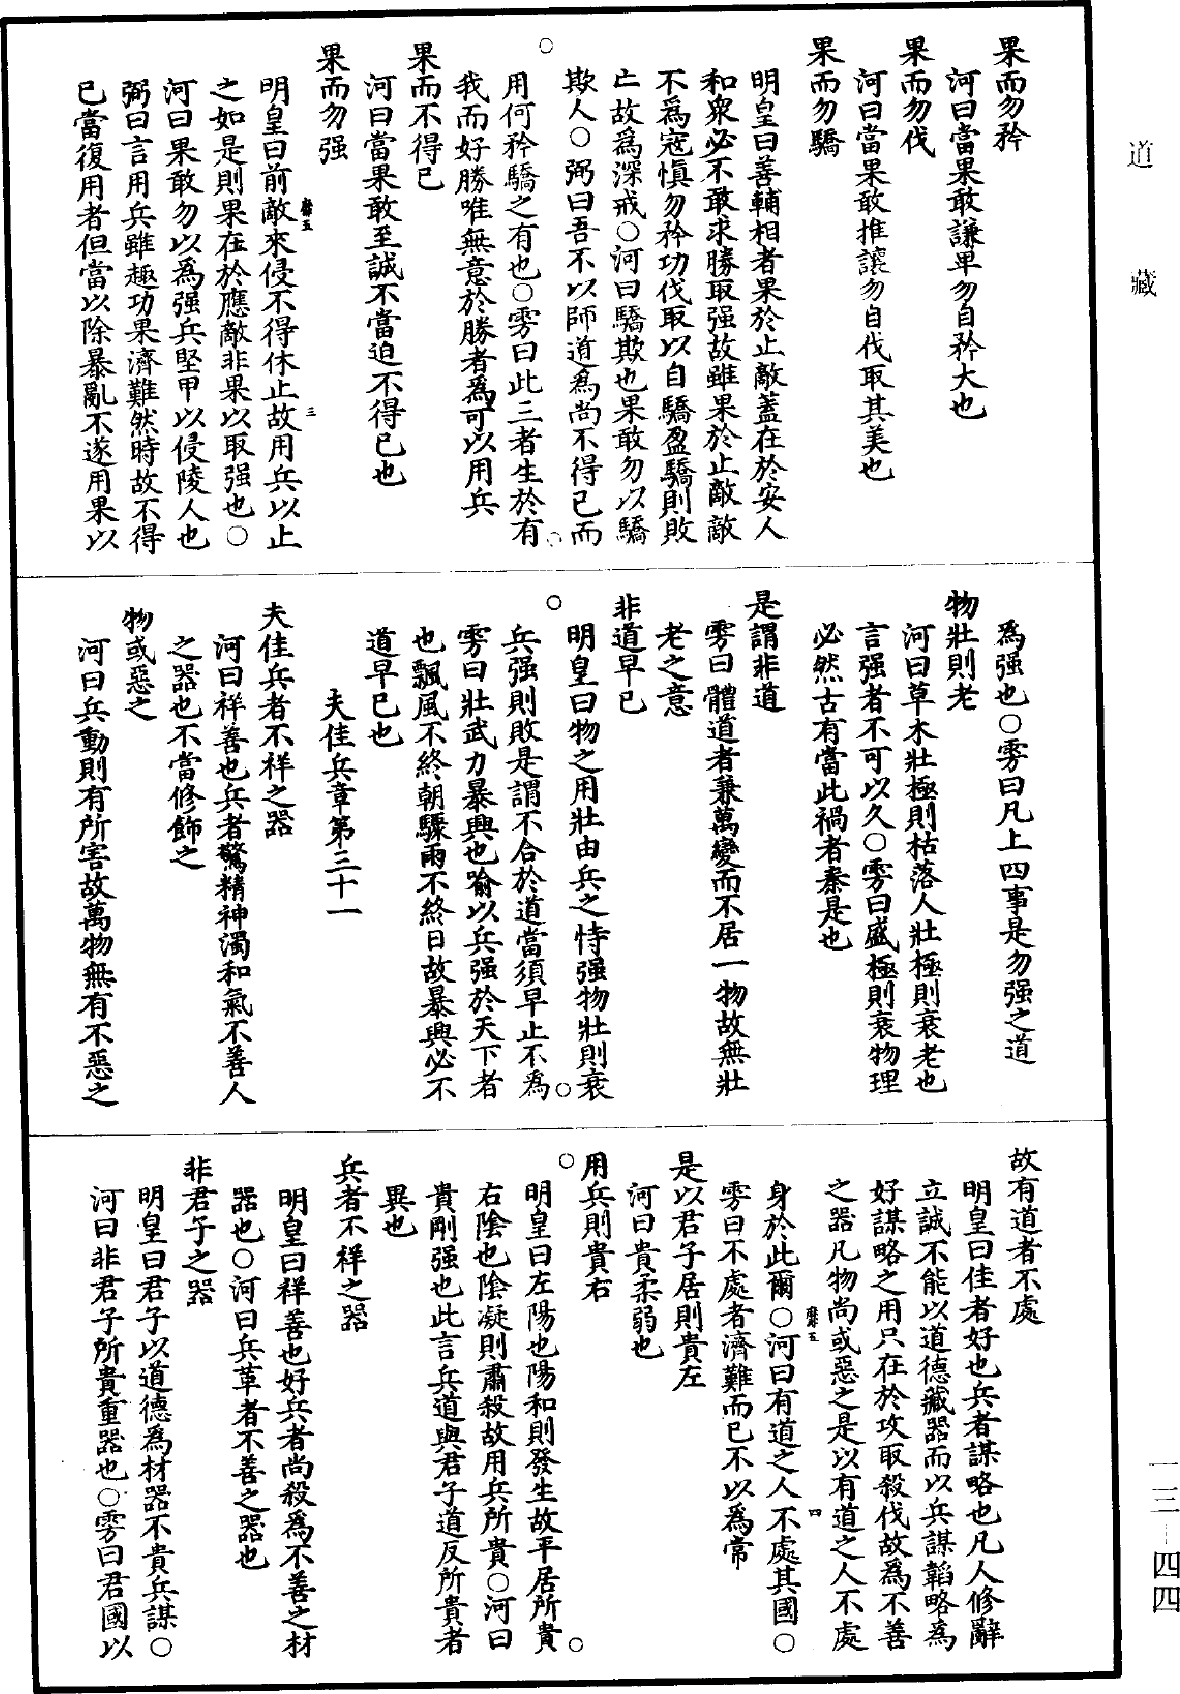 道藏
果而勿矜
河曰當果敢謙卑勿自矜大也
果而勿伐
河曰當果敢推讓勿自伐取其美也
果而勿驕
明皇曰善輔相者果於止敵蓋在於安人
和衆必不敢求勝取强故雖果於止敵敵
不爲寇慎勿矜功伐取以自驕盈驕則敗
亡故爲深戒○河曰驕欺也果敢勿以驕
欺人○弼曰吾不以師道爲尚不得已而
用何矜驕之有也○雱曰此三者生於有
我而好勝唯無意於勝者爲可以用兵
果而不得已
河曰當果敢至誠不當迫不得已也
果而勿强
明皇曰前敵來侵不得休止故用兵以止
之如是則果在於應敵非果以取强也○
河曰果敢勿以爲强兵堅甲以侵陵人也
弼曰言用兵雖趣功果濟難然時故不得
已當復用者但當以除暴亂不遂用果以
爲强也○雱曰凡上四事是勿强之道
物壯則老
河曰草木壯極則枯落人壯極則衰老也
言强者不可以久○雱曰盛極則衰物理
必然古有當此禍者秦是也
是謂非道
雱曰體道者兼萬變而不居一物故無壯
老之意
非道早已
明皇曰物之用壯由兵之恃强物壯則衰
兵强則敗是謂不合於道當須早止不爲
雱曰壯武力暴興也喻以兵强於天下者
也飄風不終朝驟雨不終日故暴興必不
道早已也
夫佳兵章第三十一
夫佳兵者不祥之器
河曰祥善也兵者驚精神濁和氣不善人
之器也不當修飾之
物或惡之
河曰兵動則有所害故萬物無有不惡之
故有道者不處
明皇曰佳者好也兵者謀略也凡人修辭
立誠不能以道德藏器而以兵謀韜略爲
好謀略之用只在於攻取殺伐故爲不善
之器凡物尚或惡之是以有道之人不處
身於此爾○河曰有道之人不處其國○
雱曰不處者濟難而已不以爲常
是以君子居則貴左
河曰貴柔弱也
用兵則貴右
明皇曰左陽也陽和則發生故平居所貴
右陰也陰凝則肅殺故用兵所貴○河曰
貴剛强也此言兵道與君子道反所貴者
異也
兵者不祥之器
明皇曰祥善也好兵者尚殺爲不善之材
器也○河曰兵革者不善之器也
非君子之器
明皇曰君子以道德爲材器不貴兵謀○
河曰非君子所貴重器也○雱曰君國以
一三－四四